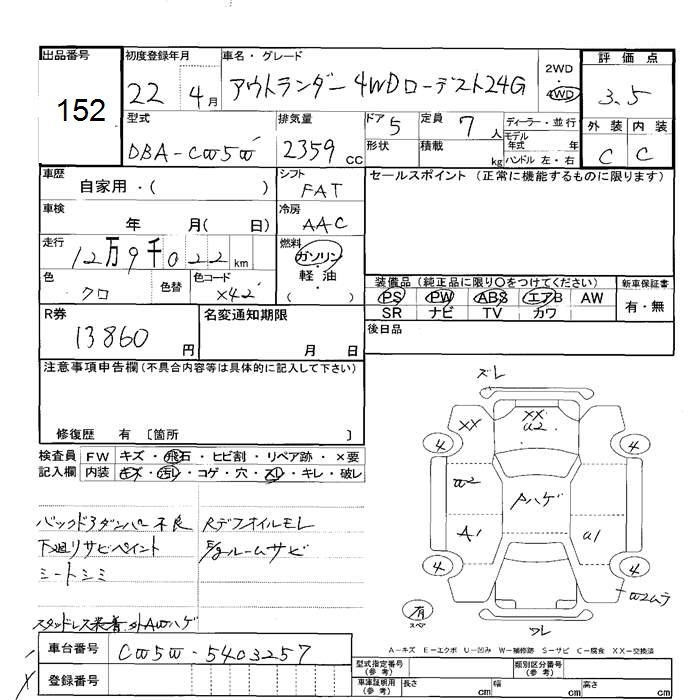 出品番号
152
初度登録年月
22 4月
車名・グレード
アウトランダー 4WDローデスト24G
2WD
4WD
評価点
3.5
外装 内装
C C
型式
DBA-CW5W
排気量
2359 CC
ドア 5
形状
定員 7 人
積載 kg
ディーラー・並行
モデル
年式 年
ハンドル 左・右
車歴
自家用・( )
シフト
FAT
セールスポイント (正常に機能するものに限ります)
車検
年 月( 日)
冷房
AAC
走行
12万9千022km
燃料
ガソリン
軽油
( )
色
クロ
色替
色コード
X42
装備品 (純正品に限り〇をつけてください)
PS PW ABS エアB AW
SR ナビ TV カワ
新車保証書
有・無
R券
13860 円
名変通知期限
月 日
後日品
注意事項申告欄(不具合内容等は具体的に記入して下さい)
修復歴 有 〔箇所 〕
検査員 FW キズ・飛石・ヒビ割・リペア跡・×要
記入欄 内装 キズ・汚レ・コゲ・穴・スレ・キレ・破レ
バックドアダンパー不良 Rデフオイルモレ
下廻リサビペイント E/gルームサビ
シートシミ
スタッドレス装着 外AWハゲ
ズレ
XX
XX
U2
4
4
W2
Pハゲ
A1
U1
4
4
W2ムラ
有
スペア
ワレ
車台番号
CW5W-5403257
登録番号
A-キズ E-エクボ U-凹み W-補修跡 S-サビ C-腐食 XX-交換済
型式指定番号
(参考)
類別区分番号
(参考)
車庫証明用
(参考)
長さ cm 幅 cm 高さ cm